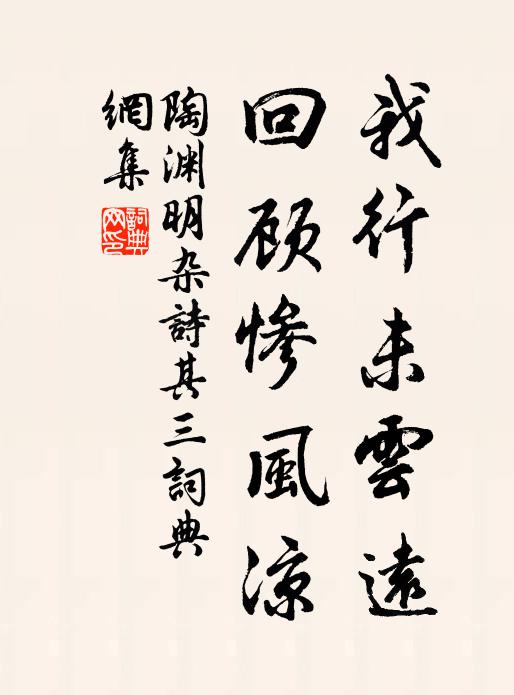 我行未雲遠
回顾惨風涼
陶渊明杂詩其三詞典
網集
詞典
网印